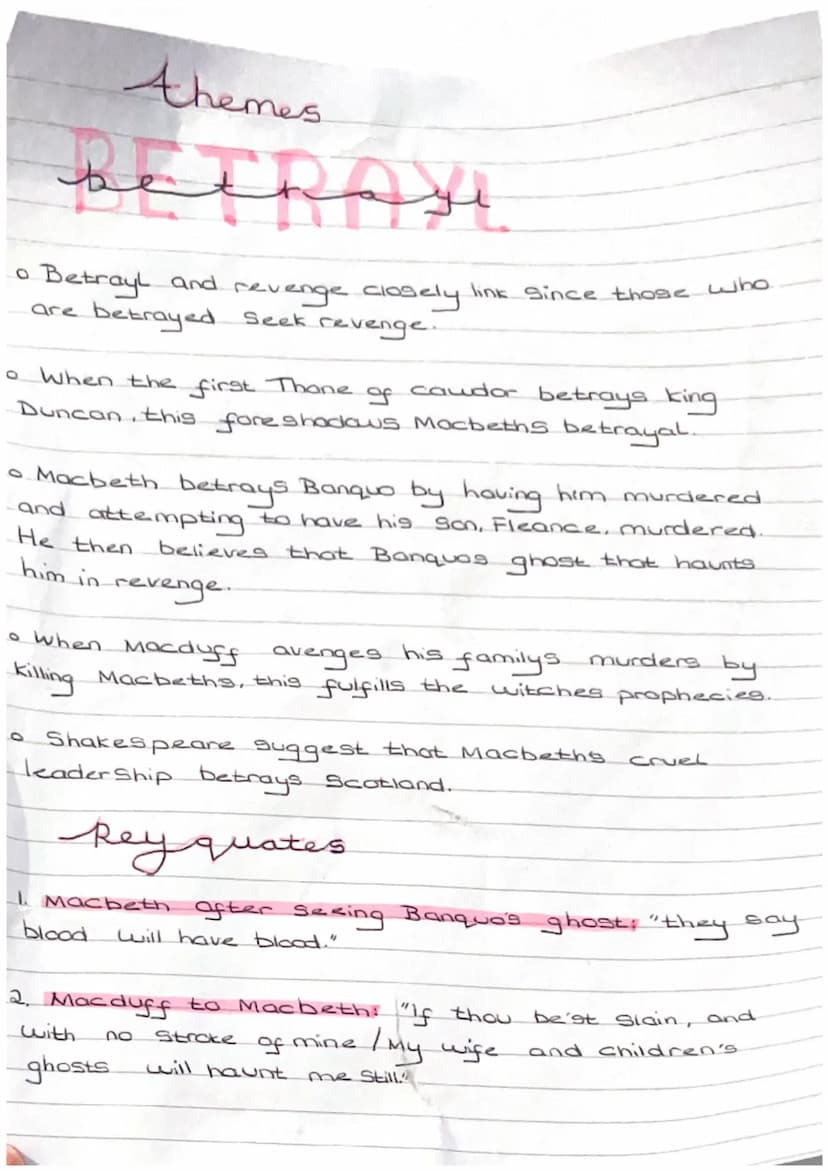 themes
BETRAYL
betrayl
Betrayl and revenge closely link since those who
are betrayed seek revenge.
When the first Thane of caudor betrays king
Duncan, this foreshadows Macbeths betrayal.
Macbeth betrays Banquo by having him murdered
and attempting to have his son, Fleance, murdered.
He then believes that Banquos ghost that haunts
him in revenge.
When Macduff avenges his familys murders by
killing Macbeths, this fulfills the witches prophecies.
Shakespeare suggest that Macbeths cruel
leadership betrays Scotland.
Key quates
1. Macbeth after seeing Banquo's ghost: "they say
blood will have blood."
2. Macduff to Macbeth: "If thou be'st slain, and
with no stroke of mine / My wife and children's
ghosts will haunt me still."